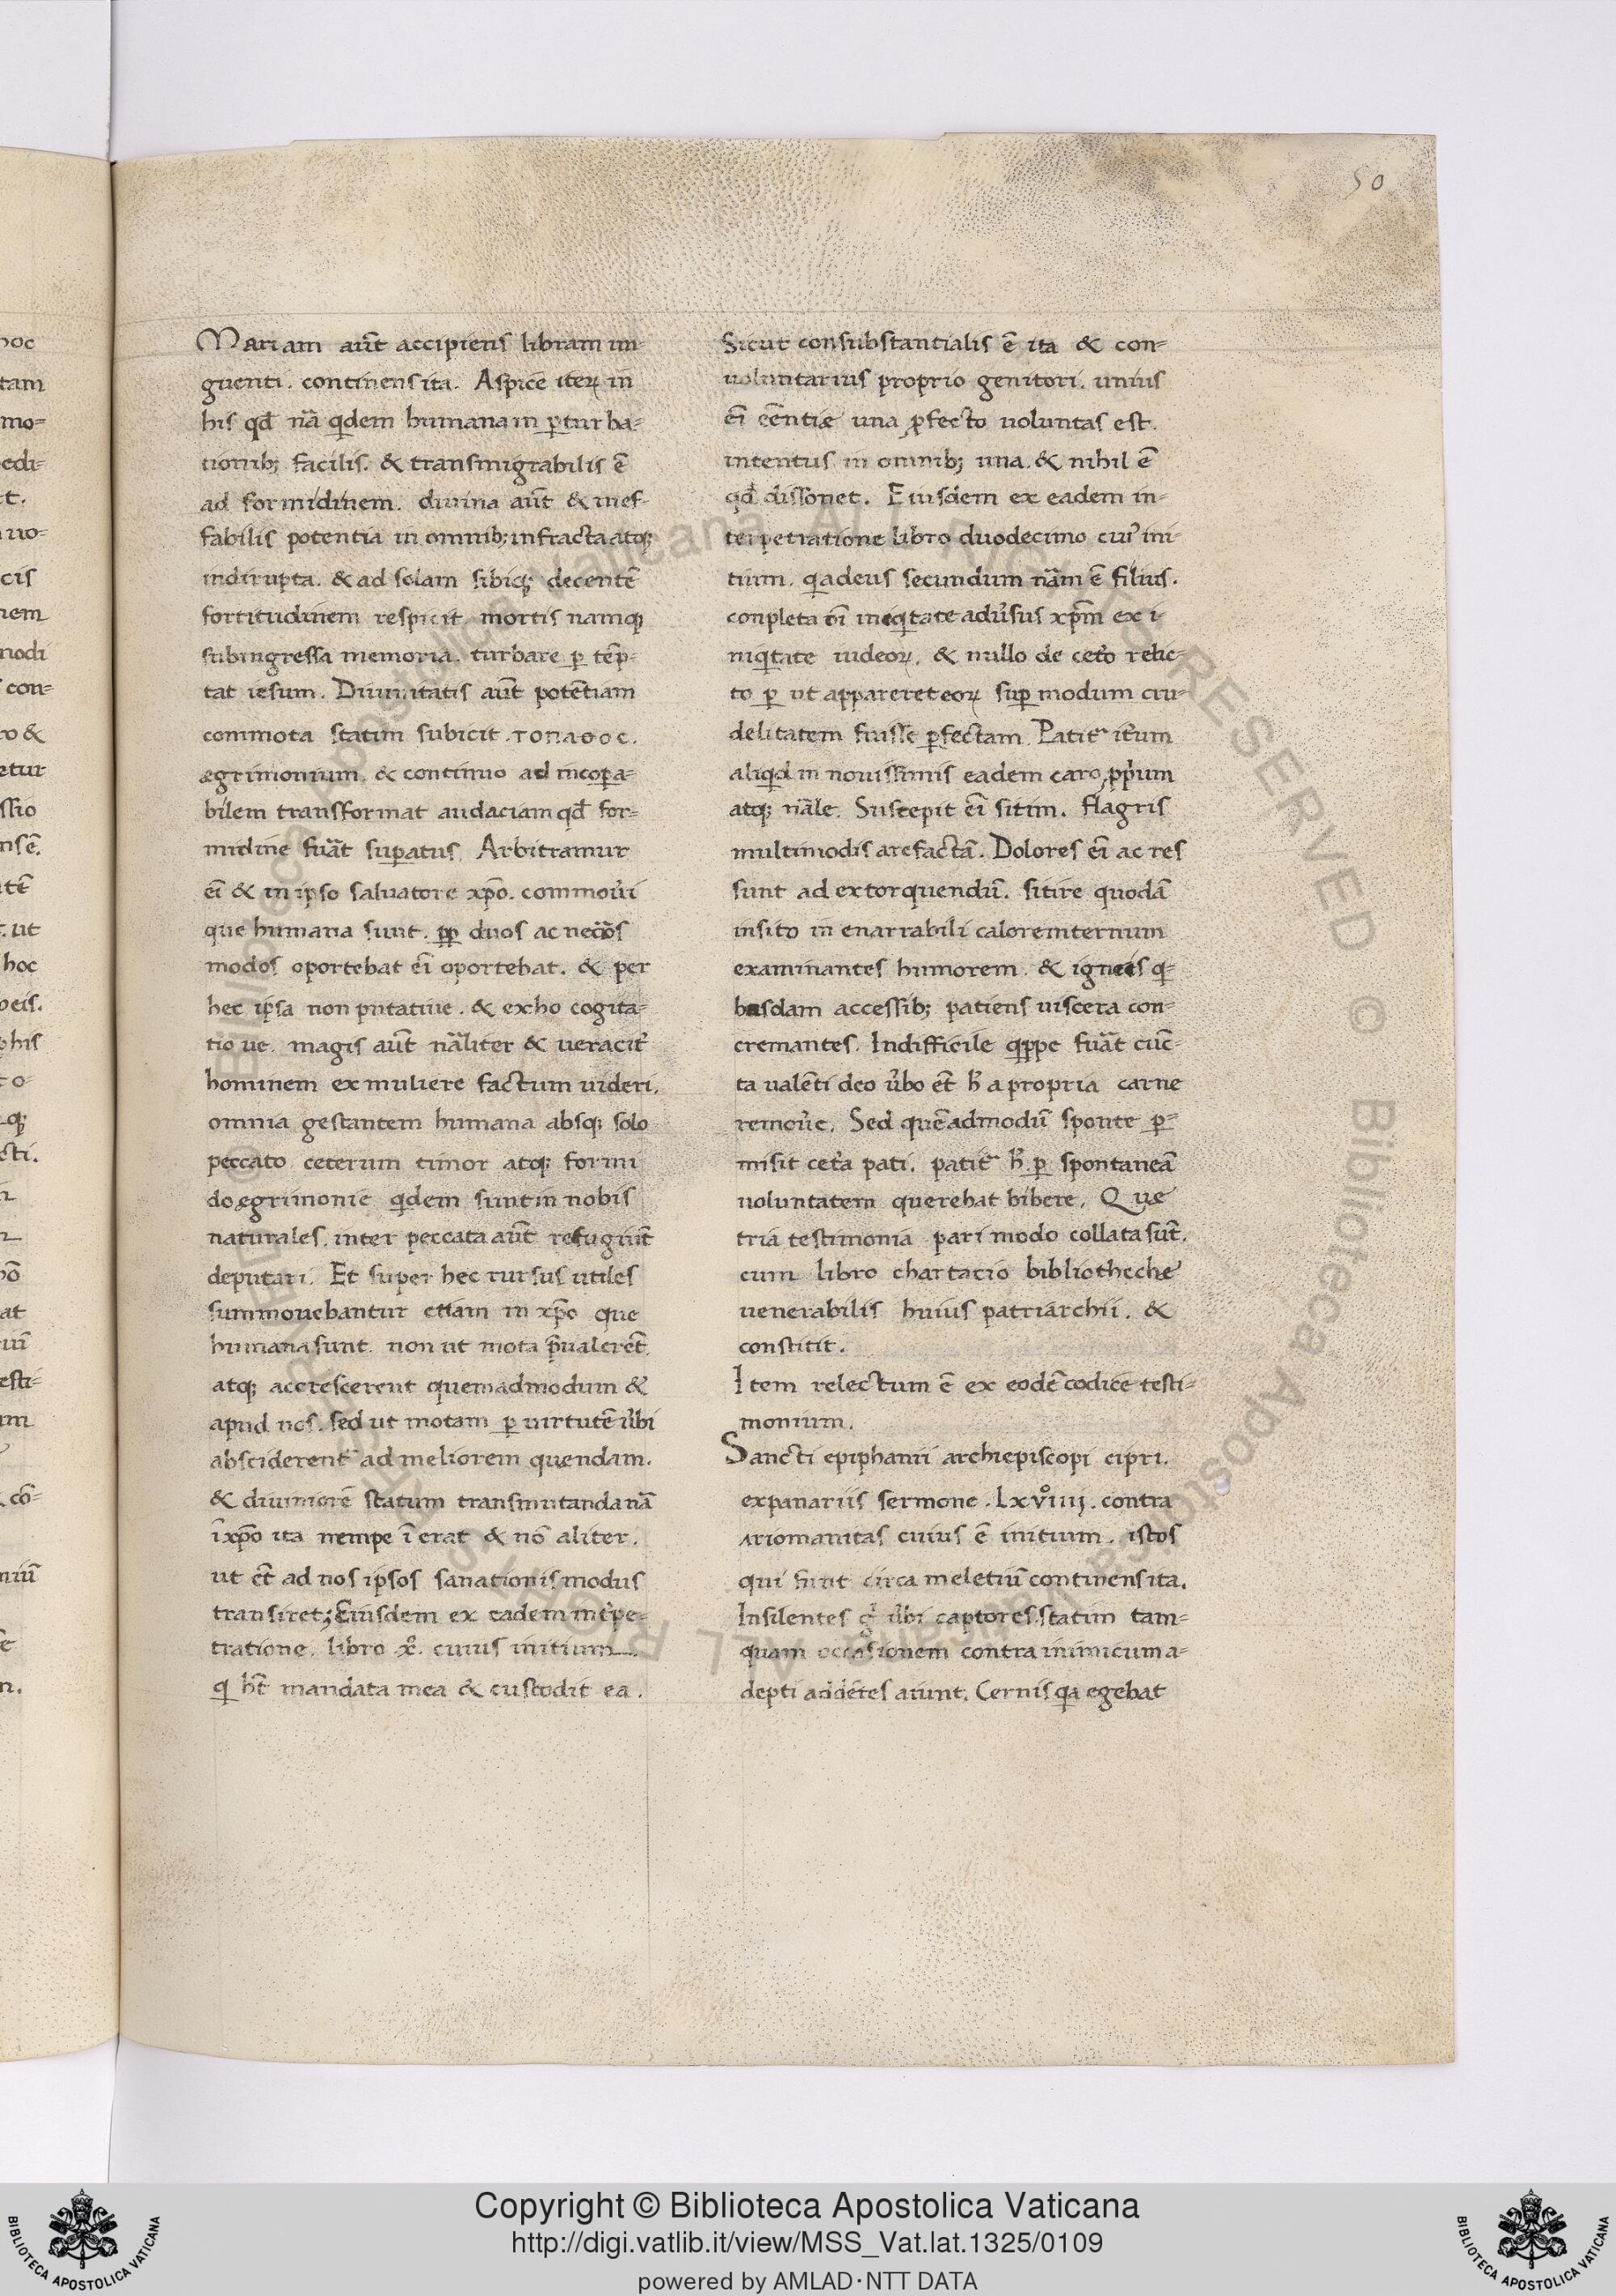 50
Mariam aut̄ accipiens libram un-
guenti. continens ita. Aspice iteꝝ in
his qd̄ nā qdem humana in ꝑturba-
tionib; facilis. & transmigrabilis ē
ad formidinem. diuina aut̄ & inef-
fabilis potentia in omnib; infracta atq;
indirupta. & ad solam sibiq; decentē
fortitudinem respicit mortis namq;
subingressa memoria. turbare ꝑ tēp-
tat iesum. Diuinitatis aut̄ potētiam
commota statim subicit. τοπαθοc.
egrimonium. & continuo ad incoꝑa-
bilem transformat audaciam qd̄ for-
midine fuāt suꝑatus. Arbitramur
ei̅ & in ipso saluatore xp̄o. commoūi
que humana sunt. ꝑꝑ duos ac nec̄ōs
modos oportebat ei̅ oportebat. & per
hec ipsa non putatiue. & ex ho cogita-
tio ue. magis aut̄ nāliter & ueracit̄
hominem ex muliere factum uideri.
omnia gestantem humana absq; solo
peccato ceterum timor atq; formi
do egrimonie qdem sunt in nobis
naturales. inter peccata aut̄ refugiūt
deputari. Et super hec rursus utiles
summouebantur etiam in xp̄o que
humana sunt. non ut mota p̄ualerēt.
atq; accrescerent quemadmodum &
apud nos. sed ut motam ꝑ uirtutē ūbi
absciderent̄ ad meliorem quendam.
& diuiniorē statum transmutanda nā
i̅ xp̄o ita nempe i̅ erat & nō aliter.
ut et̄ ad nos ipsos sanationis modus
transiret; Eiusdem ex eadem int̄pe-
tratione. libro x̊. cuius initium.
q ht̄ mandata mea & custodit ea.
Sicut consubstantialis ē ita & con-
uoluntarius proprio genitori. unius
ei̅ eēntie una ꝓfecto uoluntas est.
intentus in omnib; una. & nihil ē
qd̄ dissonet. Eiusdem ex eadem in-
terpetratione libro duodecimo cui᾽ ini-
tium. qa deus secundum nām ē filius.
conpleta oi̅ ineqtate adūsus xp̄m ex i
niqtate iudeoꝝ. & nullo de cet̄o relic-
to ꝑ ut appareret eoꝝ suꝑ modum cru-
delitatem fuisse ꝑfectam. Patit᾽ it̄um
aliqd in nouissimis eadem caro ꝓp̄um
atq; nāle. Suscepit ei̅ sitim. flagris
multimodis arefactā. Dolores ei̅ ac res
sunt ad extorquendū. sitire quodā
insito in enarrabili calore internum
examinantes humorem. & igneis q-
busdam accessib; patiens uiscera con-
cremantes. Indifficile qppe fuāt cūc-
ta ualēti deo ūbo et̄ h̄ a propria carne
remoūe. Sed quēadmodū sponte ꝑ-
misit cet̄a pati. patit᾽ h̄ ꝑ spontaneā
uoluntatem querebat bibere. Que
tria testimonia pari modo collata sūt.
cum libro chartacio bibliotheche
uenerabilis huius patriarchii. &
constitit.
Item relectum ē ex eodē codice testi-
monium.
Sancti epiphanii archiepiscopi cipri.
ex panariis sermone. lxviiij. contra
ariomanitas cuius ē initium. istos
qui sunt circa meletiū continens ita.
Insilentes ūbi captores. statim tam-
quam occasionem contra inimicum a-
depti addētes aiunt. Cernis qa egebat
Copyright © Biblioteca Apostolica Vaticana
http://digi.vatlib.it/view/MSS_Vat.lat.1325/0109
powered by AMLAD·NTT DATA
BIBLIOTECA APOSTOLICA VATICANA
BIBLIOTECA APOSTOLICA VATICANA